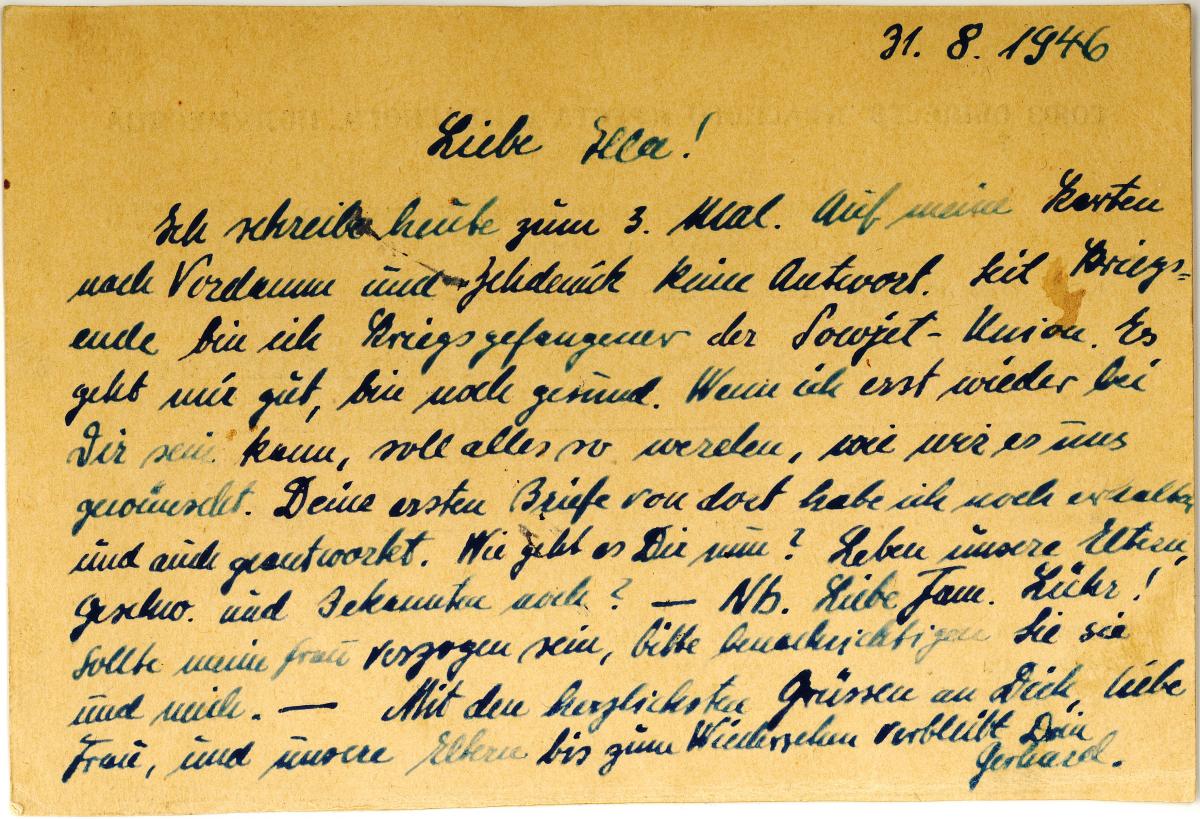 31. 8. 1946
Liebe Ella!
Ich schreibe heute zum 3. Mal. Auf meine Karten
nach Vordamm und Zehdenik keine Antwort. Seit Kriegs=
ende bin ich Kriegsgefangener der Sowjet-Union. Es
geht mir gut, bin noch gesund. Wenn ich erst wieder bei
Dir sein kann, soll alles so werden, wie wir es uns
gewünscht. Deine ersten Briefe von dort habe ich noch erhalten
und auch geantwortet. Wie geht es Dir nun? Leben unsere Eltern,
Geschw. und Bekannten noch? — Nb. Liebe Fam. Lühr!
Sollte meine Frau verzogen sein, bitte benachrichtigen Sie sie
und mich. — Mit den herzlichsten Grüssen an Dich, liebe
Frau, und unsere Eltern bis zum Wiedersehen verbleibt Dein
Gerhard.